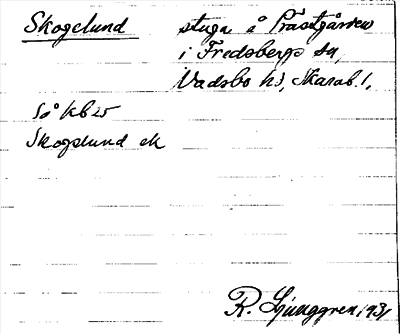 Skogelund stuga å Prästgården
i Fredsbergs sn,
Vadsbo hd, Skarab. l.
Så kb 25
Skogslund ek
R. Ljunggren 1931